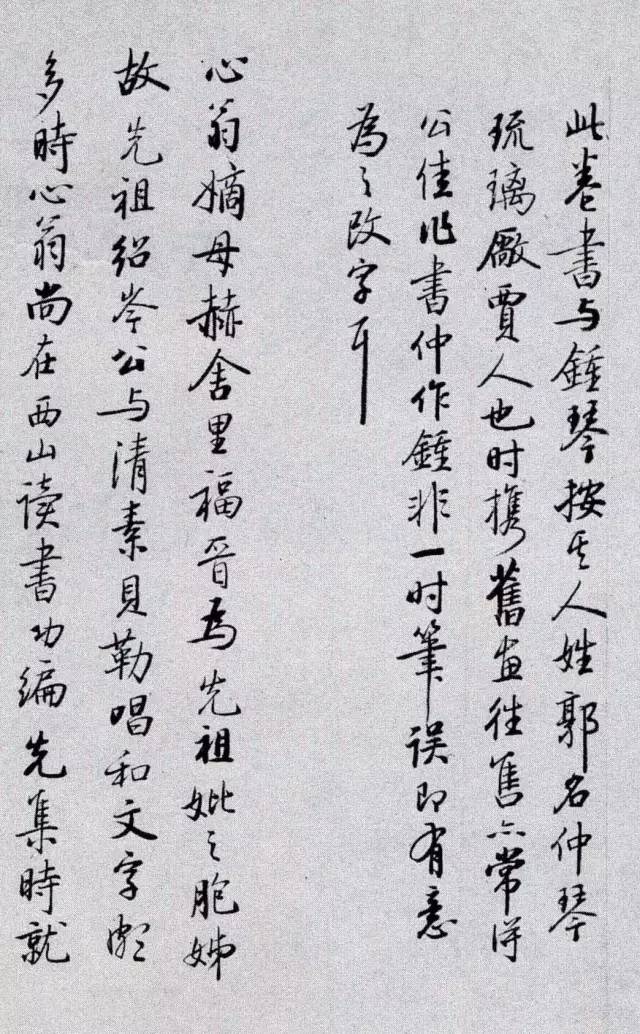 此卷書与鍾琴按其人姓郭名仲琴
琉璃厰賈人也时携舊畫往售亦常得
公佳作書仲作鍾非一时筆误即有意
為之改字耳
心翁嫡母赫舍里福晋為先祖妣之胞姊
故先祖紹岑公与清素貝勒唱和文字頗
多時心翁尚在西山读書功編先集時就